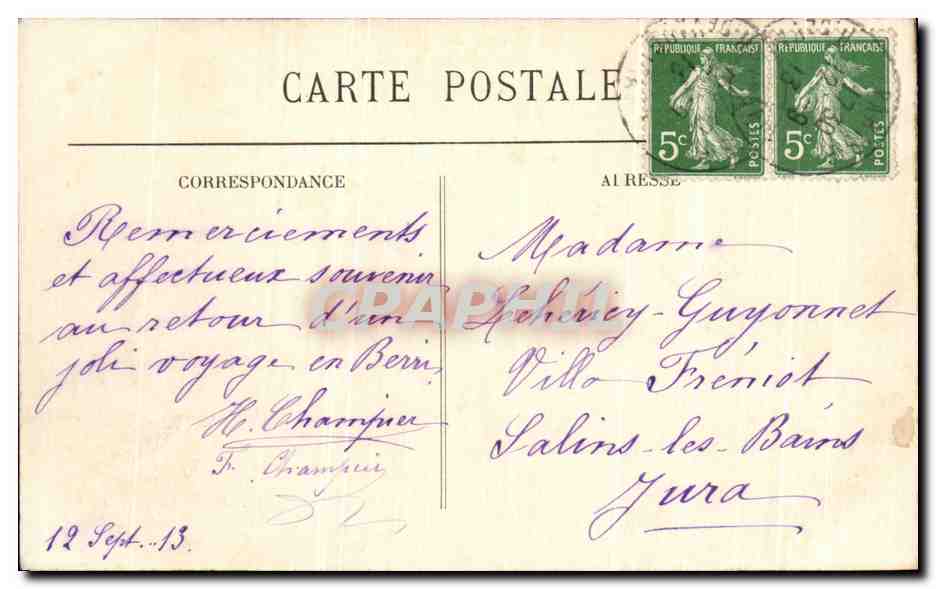 CARTE POSTALE
RÉPUBLIQUE FRANÇAISE
5c
POSTES
RÉPUBLIQUE FRANÇAISE
5c
POSTES
CORRESPONDANCE
Remerciements
et affectueux souvenir
au retour d'un
joli voyage en Berri.
H. Champier
F. Champier
12 Sept. 13.
ADRESSE
Madame
Lechéricy-Guyonnet
Villa Fréniot
Salins-les-Bains
Jura
CPAPHIL